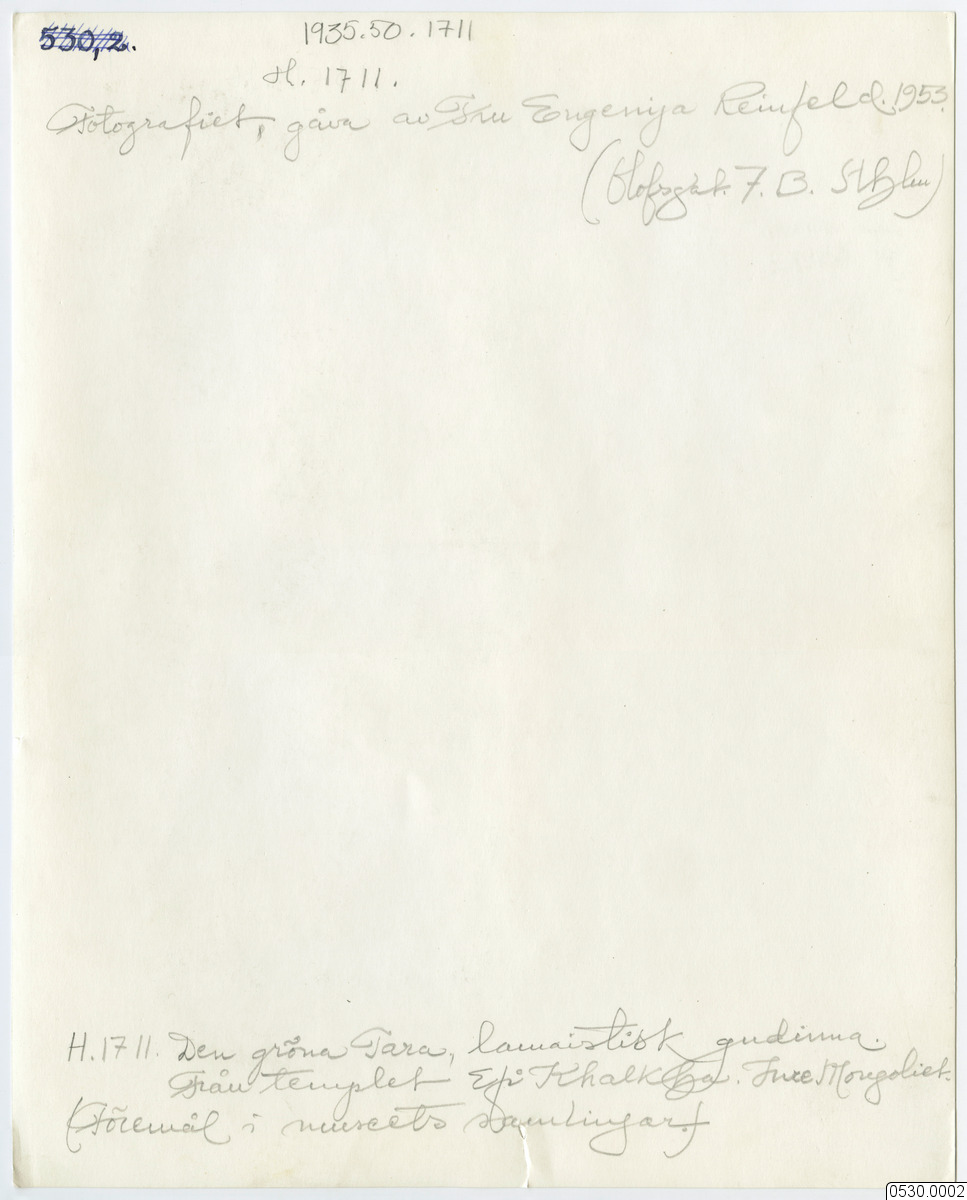 530,2.
1935.50.1711
H. 1711.
Fotografiet, gåva av Fru Eugenija Reinfeld. 1953.
(Olofsgat. 7. B. Sthlm)
H. 1711. Den gröna Tara, lamaistisk gudinna.
Från templet Efi Khalkha. Inre Mongoliet.
(Föremål i museets samlingar.)
0530.0002